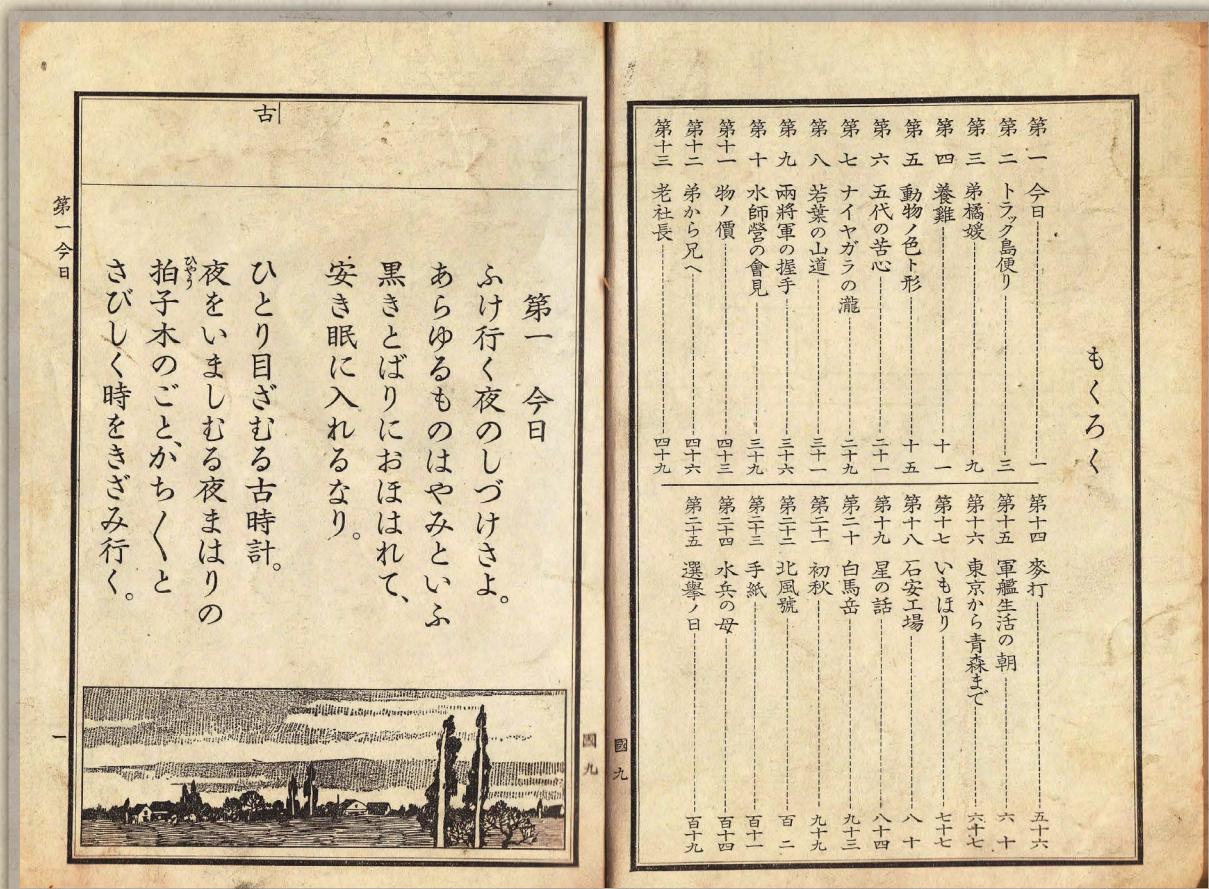 もくろく
第一 今日 一
第二 トラック島便り 三
第三 弟橘媛 九
第四 養雞 十一
第五 動物ノ色ト形 十五
第六 五代の苦心 二十一
第七 ナイヤガラの瀧 二十九
第八 若葉の山道 三十一
第九 兩將軍の握手 三十六
第十 水師營の會見 三十九
第十一 物ノ價 四十三
第十二 弟から兄へ 四十六
第十三 老社長 四十九
第十四 麥打 五十六
第十五 軍艦生活の朝 六十
第十六 東京から青森まで 六十七
第十七 いもほり 七十七
第十八 石安工場 八十
第十九 星の話 八十四
第二十 白馬岳 九十三
第二十一 初秋 九十九
第二十二 北風號 百二
第二十三 手紙 百十一
第二十四 水兵の母 百十四
第二十五 選擧ノ日 百十九
國九
國九
古
第一 今日
ふけ行く夜のしづけさよ。
あらゆるものはやみといふ
黒きとばりにおほはれて、
安き眠に入れるなり。
ひとり目ざむる古時計。
夜をいましむる夜まはりの
ひやうし
拍子木のごと、かち〱と
さびしく時をきざみ行く。
第一 今日
一